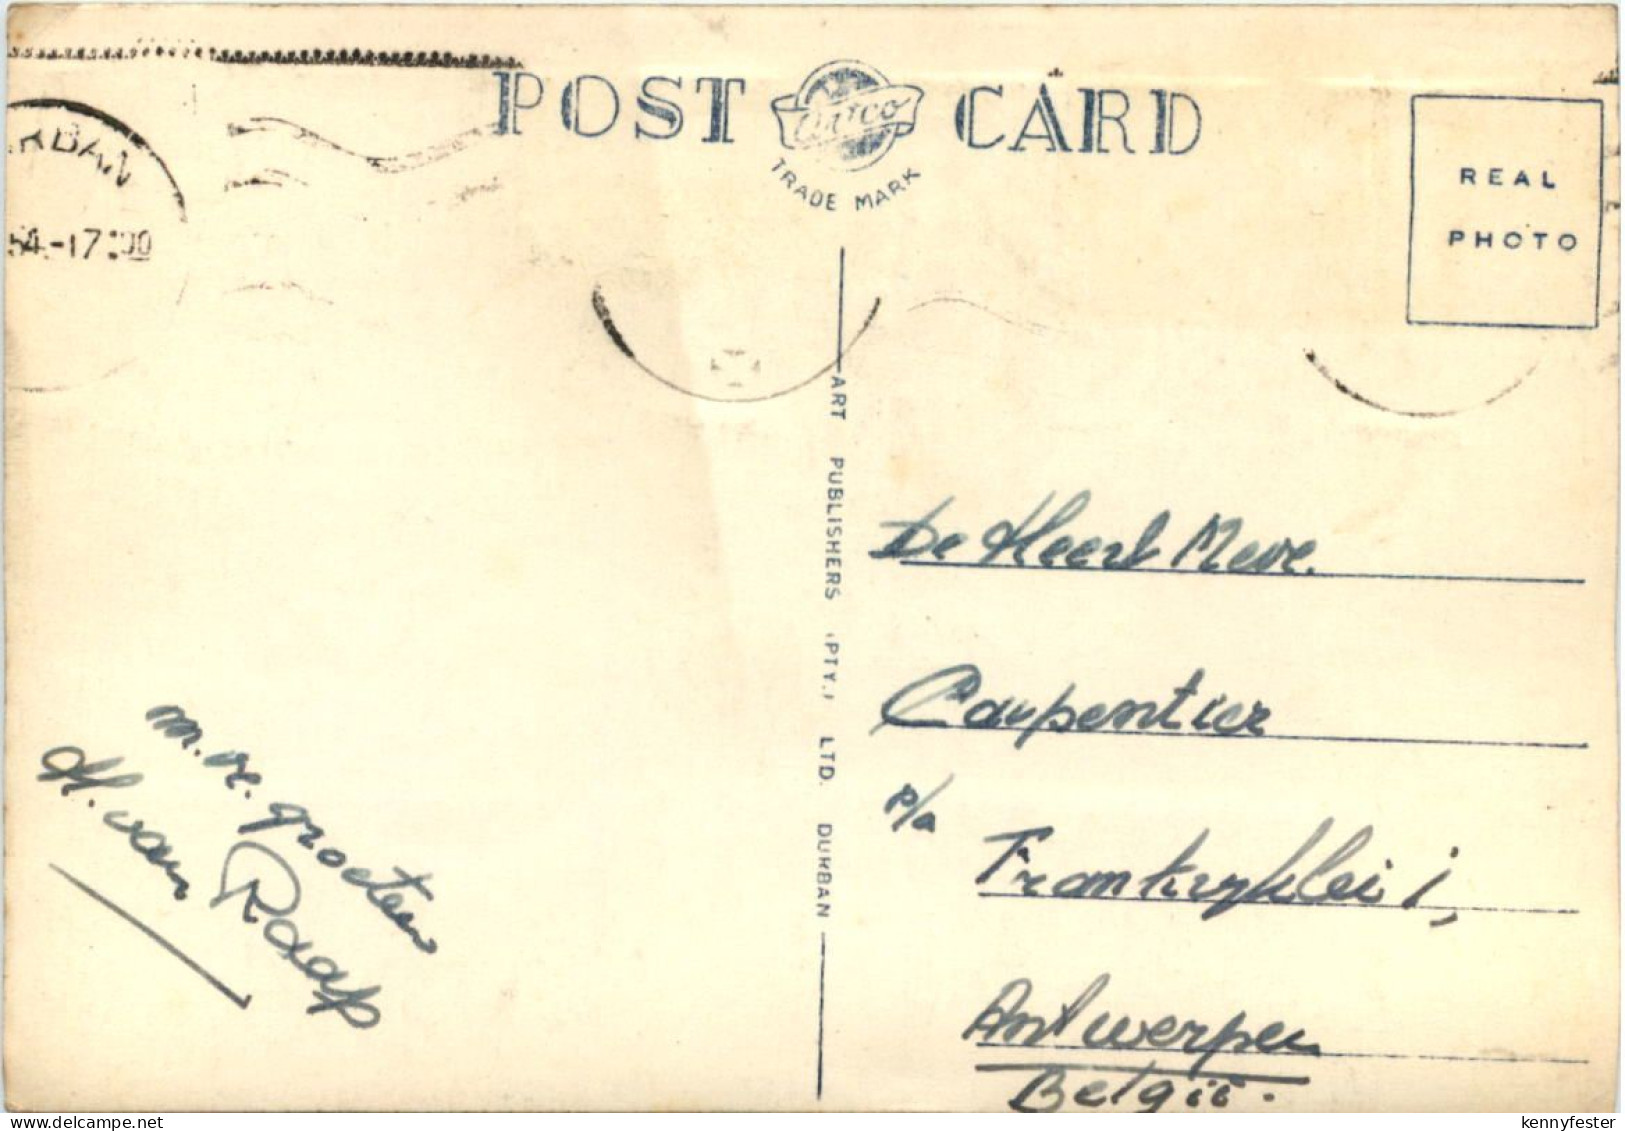 POST CARD
Artco
TRADE MARK
REAL
PHOTO
RBAN
54.-17:00
ART PUBLISHERS (PTY.) LTD. DURBAN
De Heer & Mevr.
Carpentier
p/a
Frankryklei 1,
Antwerpen
België.
m. vr. groeten
H. van Raap
kennyfester